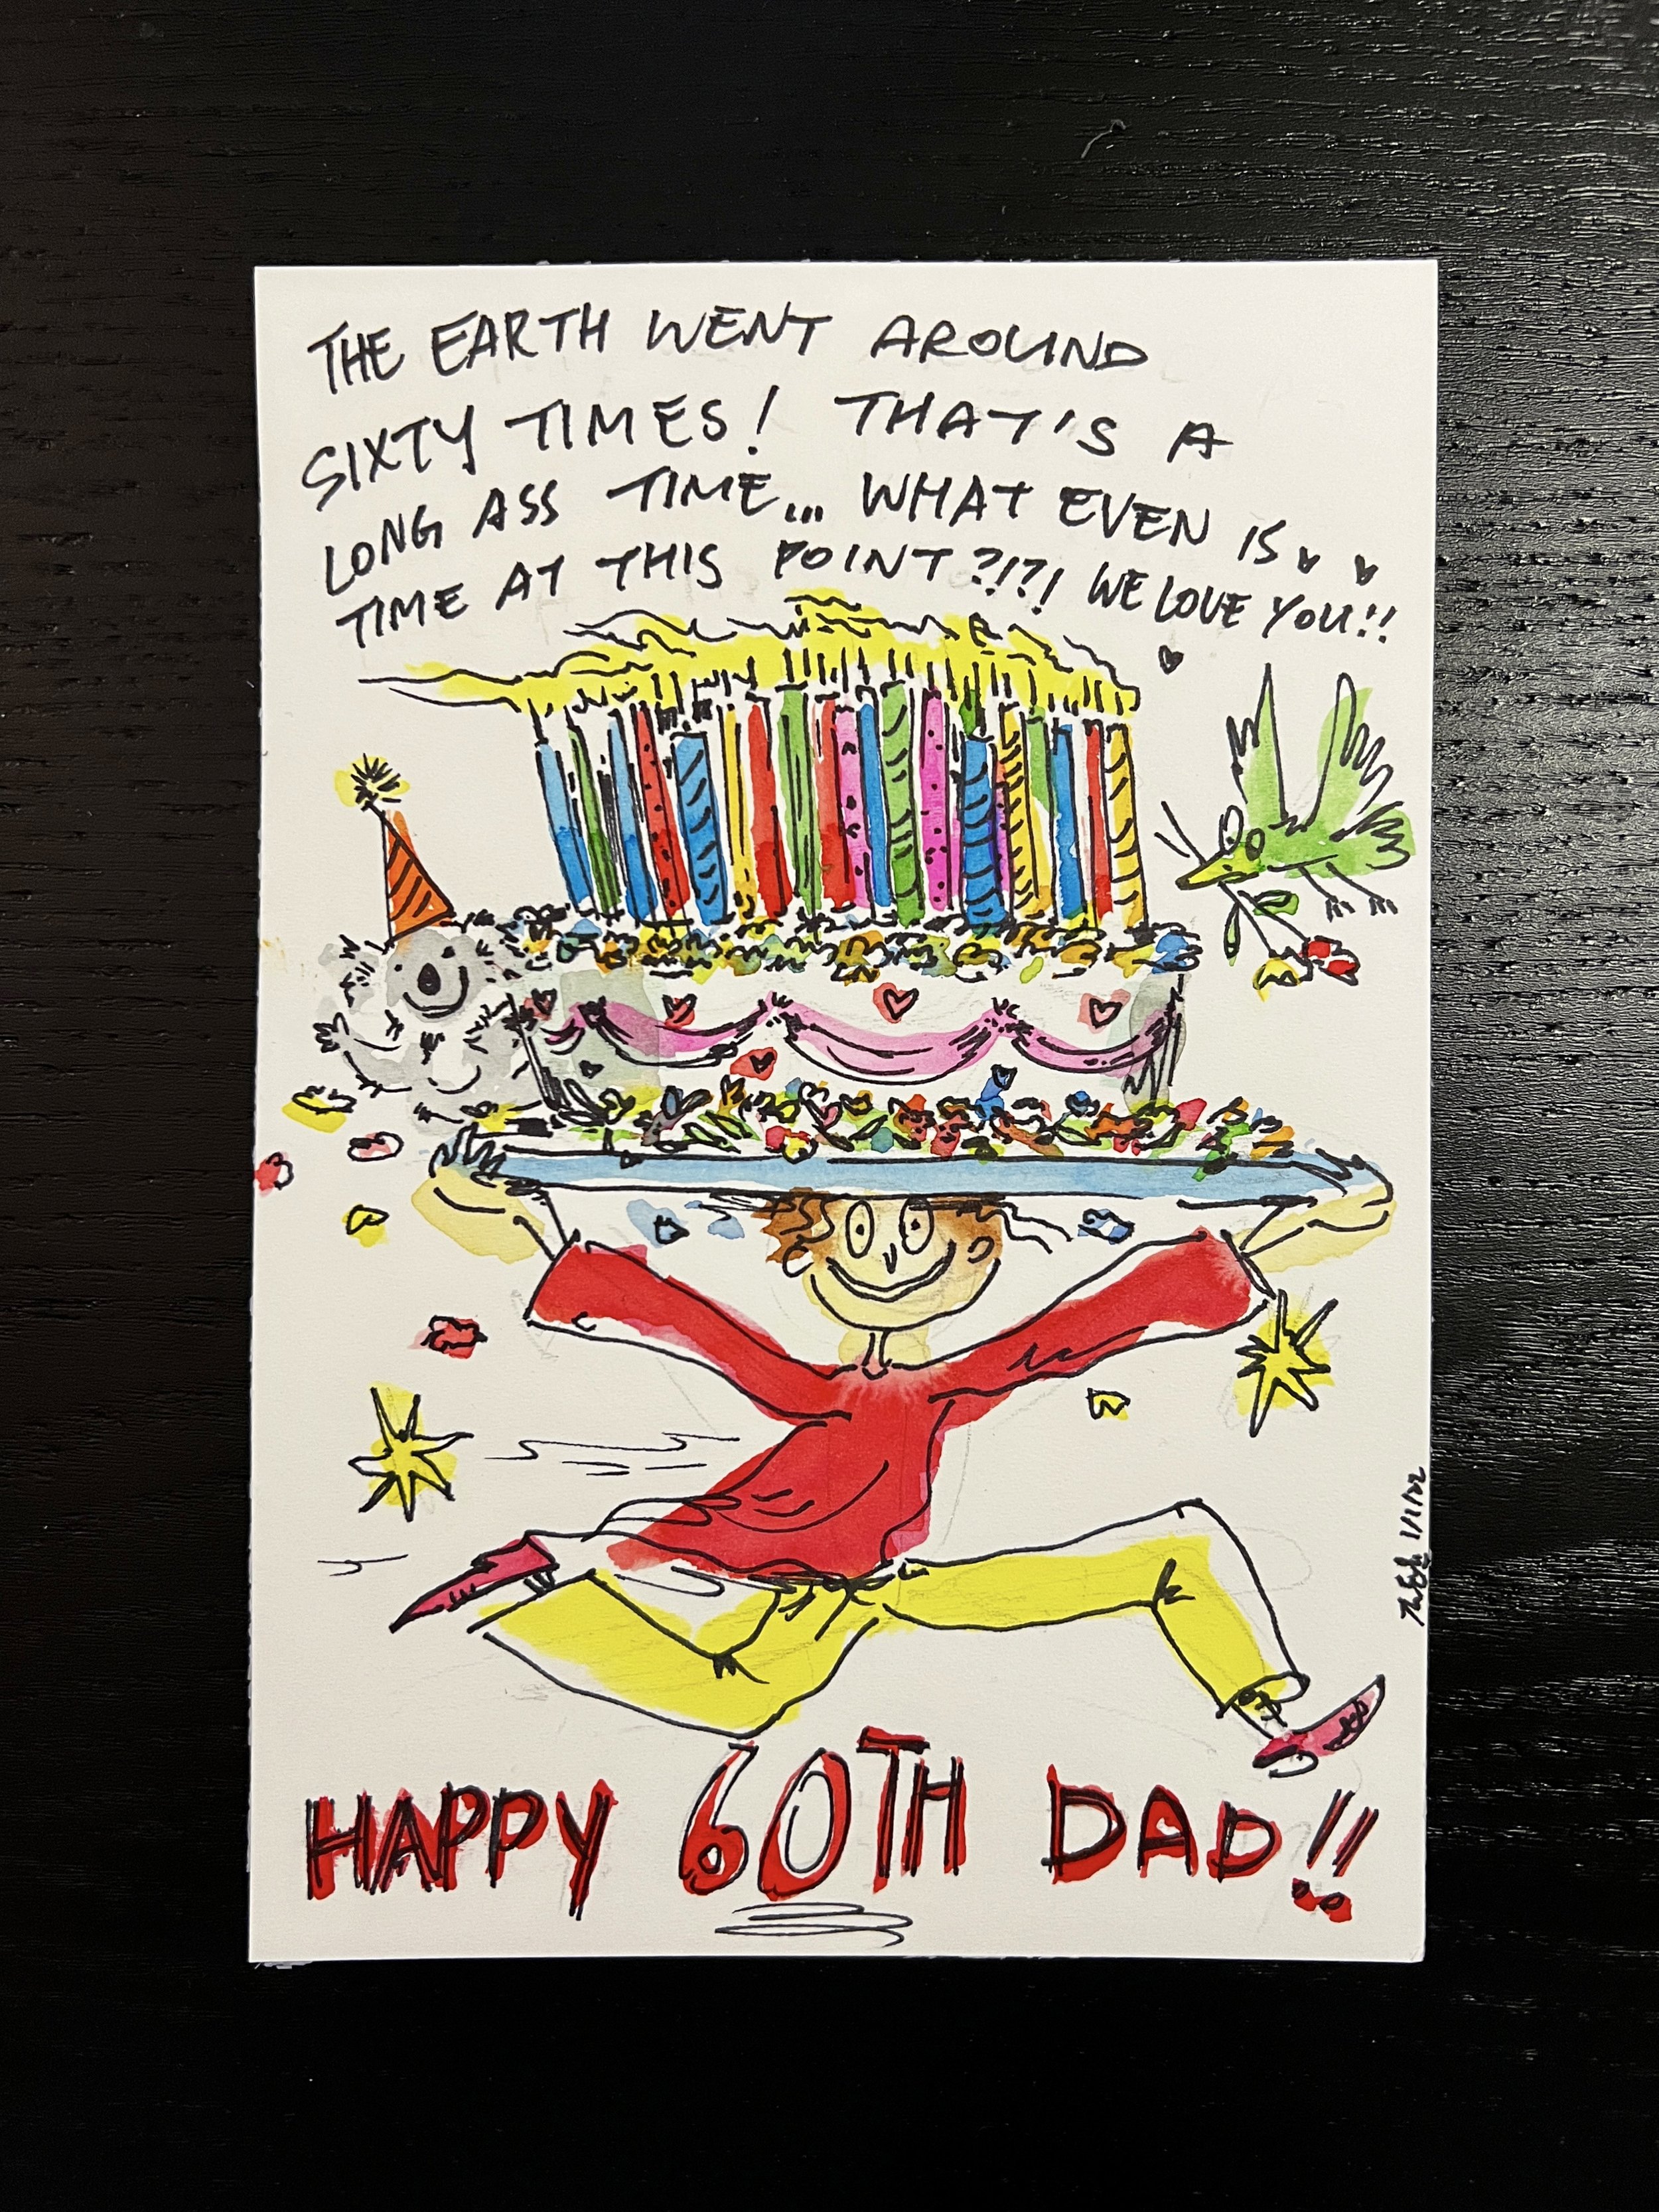 THE EARTH WENT AROUND
SIXTY TIMES! THAT'S A
LONG ASS TIME... WHAT EVEN IS
TIME AT THIS POINT?!?! WE LOVE YOU!!
1/1/22
HAPPY 60TH DAD!!